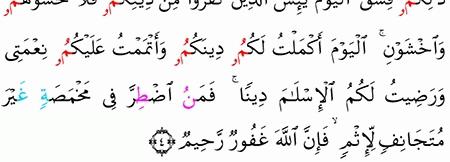 ذَٰلِكُمُۥ فِسْقٌ ٱلْيَوْمَ يَئِسَ ٱلَّذِينَ كَفَرُوا۟ مِن دِينِكُمُۥ فَلَا تَخْشَوْهُمُۥ
وَٱخْشَوْنِ ۚ ٱلْيَوْمَ أَكْمَلْتُ لَكُمُۥ دِينَكُمُۥ وَأَتْمَمْتُ عَلَيْكُمُۥ نِعْمَتِى
وَرَضِيتُ لَكُمُ ٱلْإِسْلَٰمَ دِينًا ۚ فَمَنُ ٱضْطِرَّ فِى مَخْمَصَةٍ غَيْرَ
مُتَجَانِفٍ لِّإِثْمٍ ۙ فَإِنَّ ٱللَّهَ غَفُورٌ رَّحِيمٌ ﴿٤﴾